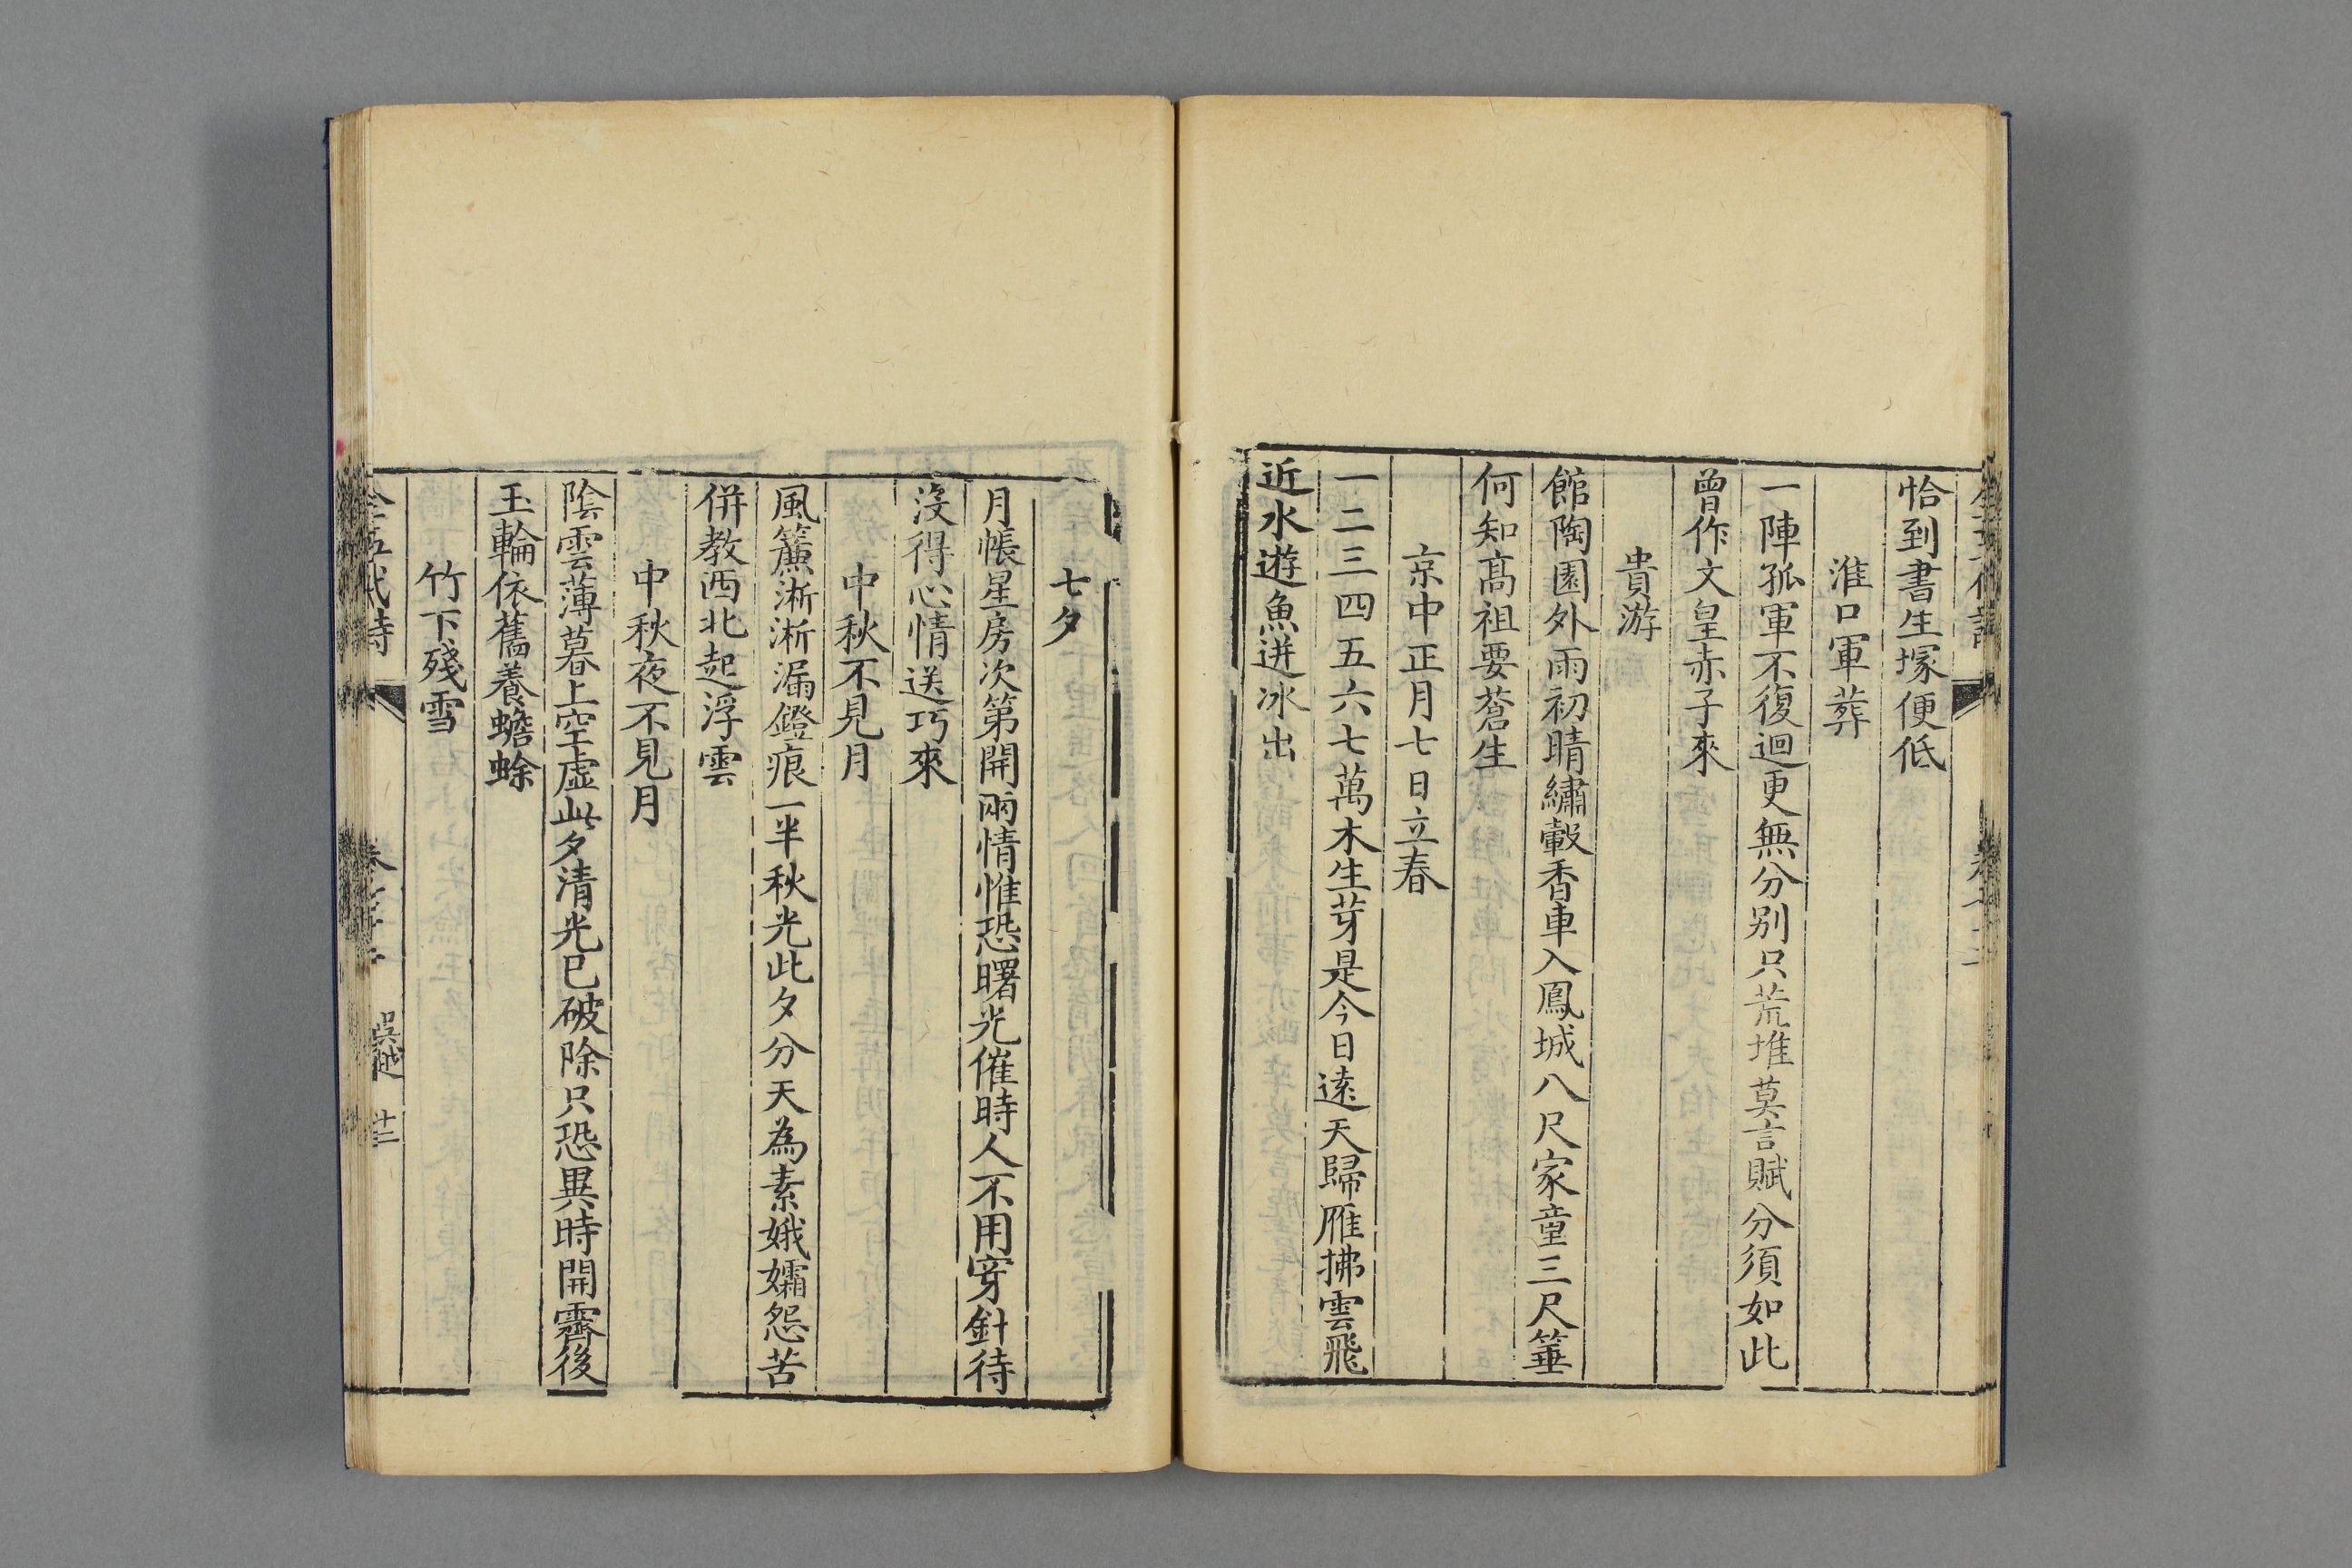 恰到書生塚便低
淮口軍葬
一陣孤軍不復迴更無分别只荒堆莫言賦分須如此
曾作文皇赤子來
貴游
館陶園外雨初晴繡轂香車入鳳城八尺家童三尺箠
何知髙祖要蒼生
京中正月七日立春
一二三四五六七萬木生芽是今日遠天歸雁拂雲飛
近水遊魚迸冰出
七夕
月帳星房次第開兩情惟恐曙光催時人不用穿針待
沒得心情送巧來
中秋不見月
風簾淅淅漏鐙痕一半秋光此夕分天為素娥孀怨苦
併教西北起浮雲
中秋夜不見月
陰雲薄暮上空虛此夕清光已破除只恐異時開霽後
玉輪依舊養蟾蜍
竹下殘雪
全五代詩
吳越 廿二